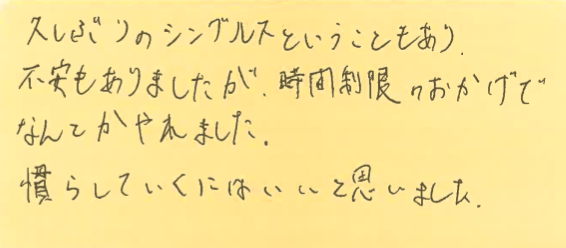 久しぶりのシングルスということもあり、
不安もありましたが、時間制限のおかげで
なんとかやれました。
慣らしていくにはいいと思いました。